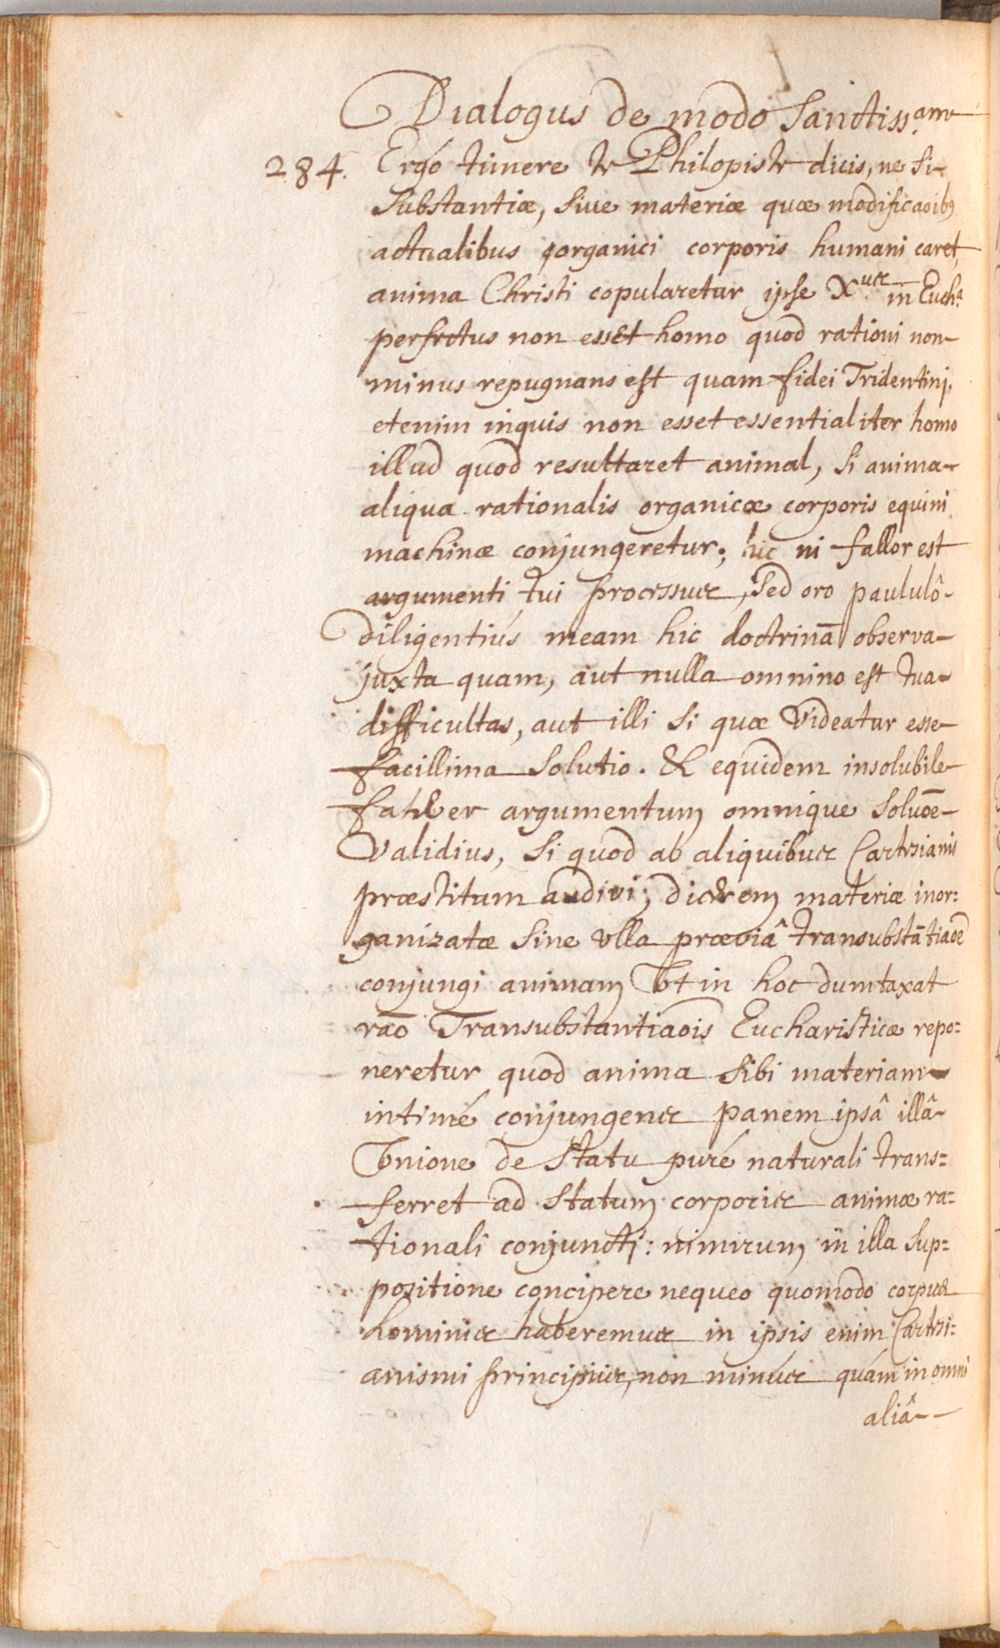 Dialogus de modo Sanctiss.amæ
284. Ergó timere te Philopiste dicis, ne si
substantiæ, sive materiæ quæ modificaoibꝰ
actualibus organici corporis humani caret,
anima Christi copularetur ipse Xus in Euch.a
perfectus non esset homo quod rationi non
minus repugnans est quam fidei Tridentinj.
etenim inquis non esset essentialiter homo
illud quod resultaret animal, si anima
aliqua rationalis organicæ corporis equini
machinæ conjungeretur; hic ni fallor est
argumenti tui processus, sed oro paululô
diligentiús meam hic doctrinā observa
juxta quam, aut nulla omnino est tua
difficultas, aut illi si quæ videatur esse
facillima solutio. & equidem insolubile
fateer argumentum omnique soluōe
validius, si quod ab aliquibus Cartesianis
præstitum audivi; dicerem materiæ inor:
ganizatæ sine ulla præviâ transubstātiaōe
conjungi animam Vt in hoc dumtaxat
rāo Transubstantiaōis Eucharisticæ repo:
neretur quod anima sibi materiam
intimé conjungens panem ipsâ illâ
Vnione de statu puré naturali trans:
ferret ad statum corporis animæ ra:
tionali conjuncti: nimirum in illa sup:
positione concipere nequeo quomodo corpus
hominis haberemus in ipsis enim Cartesi:
anismi principiis, non minús quám in omni
aliâ